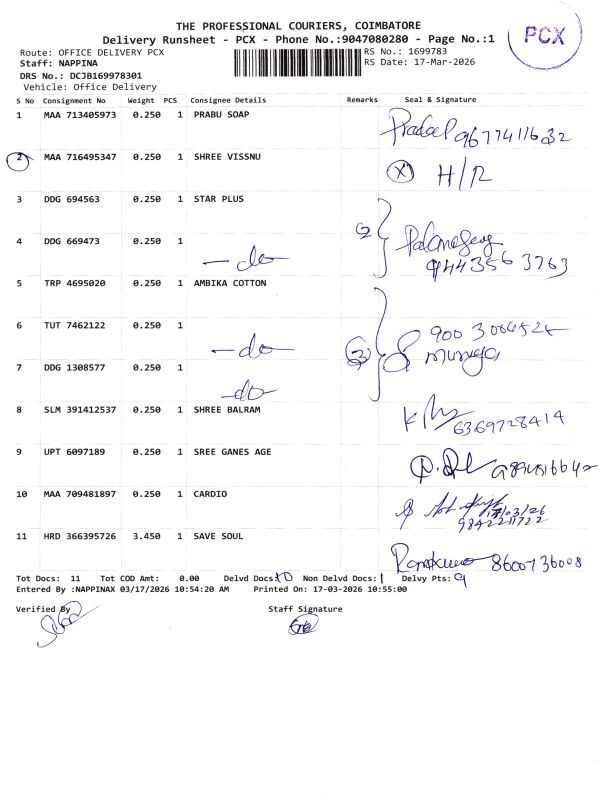 THE PROFESSIONAL COURIERS, COIMBATORE
Delivery Runsheet - PCX - Phone No.:9047080280 - Page No.:1
PCX
Route: OFFICE DELIVERY PCX RS No.: 1699783
Staff: NAPPINA RS Date: 17-Mar-2026
DRS No.: DCJB169978301
Vehicle: Office Delivery
S No Consignment No Weight PCS Consignee Details Remarks Seal & Signature
1 MAA 713405973 0.250 1 PRABU SOAP 9677411632
2 MAA 716495347 0.250 1 SHREE VISSNU X H/R
3 DDG 694563 0.250 1 STAR PLUS 2
4 DDG 669473 0.250 1 -do- 9443563763
5 TRP 4695020 0.250 1 AMBIKA COTTON
6 TUT 7462122 0.250 1 -do- 3
7 DDG 1308577 0.250 1 -do-
8 SLM 391412537 0.250 1 SHREE BALRAM 6369728414
9 UPT 6097189 0.250 1 SREE GANES AGE
10 MAA 709481897 0.250 1 CARDIO 17/03/26
9842211722
11 HRD 366395726 3.450 1 SAVE SOUL 8600736008
Tot Docs: 11 Tot COD Amt: 0.00 Delvd Docs: 10 Non Delvd Docs: 1 Delvy Pts: 9
Entered By :NAPPINAX 03/17/2026 10:54:20 AM Printed On: 17-03-2026 10:55:00
Verified By Staff Signature